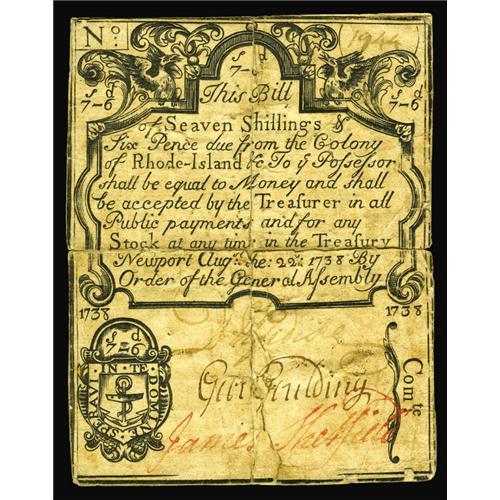 No: 1944
s d
7-6
s d
7-6
s d
7-6
This Bill
of Seaven Shillings &
Six Pence due from the Colony
of Rhode-Island &c To ye Possessor
shall be equal to Money and shall
be accepted by the Treasurer in all
Public payments and for any
Stock at any time in the Treasury
Newport Augt. the: 22d. 1738 By
Order of the General Assembly
1738 1738
s d
7-6
IN TE DOMINE SPERAVI
Com te
James Sheffield